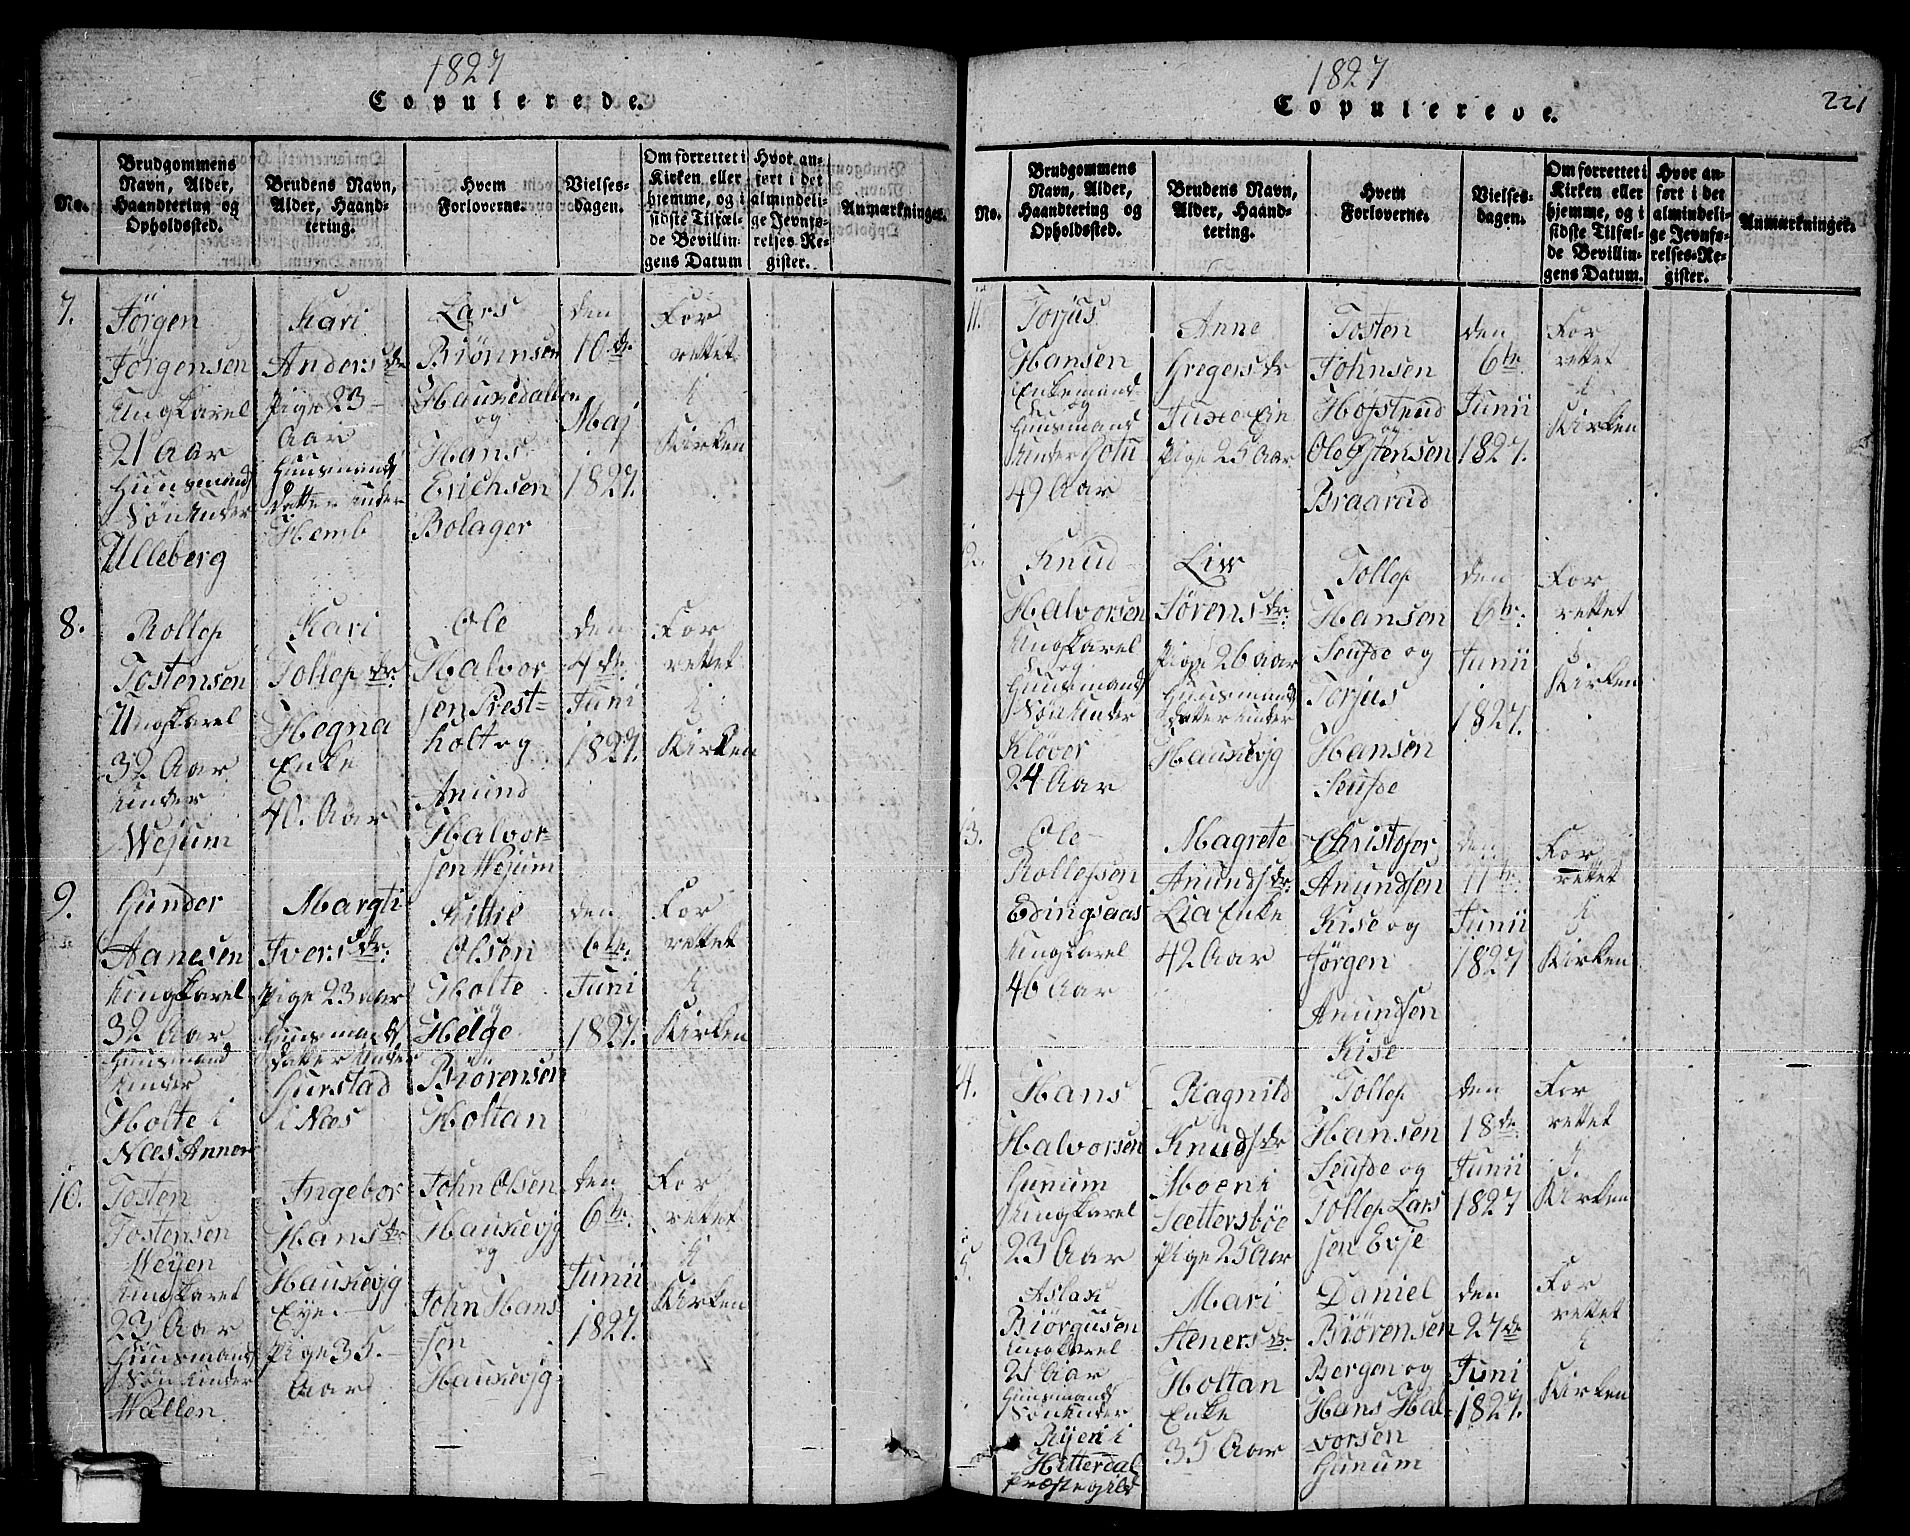 1827
Copulerede.
No.
Brudgommens
Navn, Alder,
Haandtering og
Opholdssted.
Brudens Navn,
Alder, Haand-
tering.
Hvem
Forloverne.
Vielses-
dagen.
Om forrettet i
Kirken eller
hjemme, og i
sidste Tilfæl-
de Bevillin-
gens Datum
Hvor an-
ført i det
almindeli-
ge Jevnfø-
relses-Re-
gister.
Anmærkninger.
7.
Jørgen
Jørgensen
Ungkarel
21 Aar
Huusmands
Søn under
Ulleberg
Kari
Anders dr
Pige 23
Aar
Huusmands
datter under
Hemb
Lars
Biørnsen
Hauxedallen
og
Hans
Erichsen
Bolager
den
10de
Maj
1827.
For
rettet
i
Kirken
8.
Rollep
Tostensen
Ungkarel
32 Aar
under
Wejum
Kari
Tollep dr:
Hegna
Enke
40. Aar
Ole
Halvor
sen Prest-
holt og
Anund
Halvor-
sen Wejum
den
4de
Juni
1827.
For
rettet
i
Kirken
9.
Gunder
Aanesen
Ungkarel
32 Aar
Huusmand
under
Holte i
Næs Annex
Margti
Ivers dr:
Pige 23 aar
Huusmands
datter under
Gurstad
i Næs
Kittil
Olsen
Holte
og
Helge
Biørensen
Holtan
den
6te
Juni
1827.
For
rettet
i
Kirken
10.
Tosten
Tostensen
Wejen
Ungkarel
23 Aar
Huusmands
Søn under
Wallen
Ingebor
Hans dr
Hauxevjg
Eye
Pige 35.
Aar
John Olsen
Hauxevjg
og
John Hans
sen
Hauxevjg
den
6te
Junii
1827.
For
rettet
i
Kirken
1827
Copulerede.
221
No.
Brudgommens
Navn, Alder,
Haandtering og
Opholdssted.
Brudens Navn,
Alder, Haand-
tering.
Hvem
Forloverne.
Vielses-
dagen.
Om forrettet i
Kirken eller
hjemme, og i
sidste Tilfæl-
de Bevillin-
gens Datum.
Hvor an-
ført i det
almindeli-
ge Jevnfø-
relses-Re-
gister.
Anmærkninger.
11.
Torjus
Hansen
Enkemand
og
Huusmand
under
49 Aar
Anne
Gregers dr
Pige 25 Aar
Tosten
Johnsen
Hofstrud
og
Ole Østensen
Braarud
den
6te
Junii
1827.
For
rettet
i
Kirken
2.
Knud
Halvorsen
Ungkarel
og
Huusmands
Søn under
Kløver
24 Aar
Liw
Sørens dr:
Pige 26 aar
Huusmands
datter under
Hauxevjg
Tollep
Hansen
Seufde og
Torjus
Hansen
Seufde
den
6te
Junii
1827.
For
rettet
i
Kirken
3.
Ole
Rollepsen
Edingsaas
Ungkarel
46 Aar
Magrete
Anunds dr:
Lia Enke
42 Aar
Christofer
Anundsen
Kise og
Jørgen
Anundsen
Kise
den
11te
Junii
1827
For
rettet
i
Kirken
4.
Hans
Halvorsen
Gunum
Ungkarel
23 Aar
Ragnild
Knuds dr
Moen i
Settersbøe
Pige 25 Aar
Tollep
Hansen
Seufde og
Tollep Lars
sen Evje
den
18de
Junii
1827
For
rettet
i
Kirken
5.
Aslak
Biørgusen
Ungkarel
21 Aar
Huusmands
Søn under
Ryen i
Hitterdal
Præstegield
Mari
Steners dr
Holtan
Enke
35 Aar
Daniel
Biørensen
Bergen og
Hans Hal-
vorsen
Gunum
den
27de
Juni
1827.
For
rettet
i
Kirken